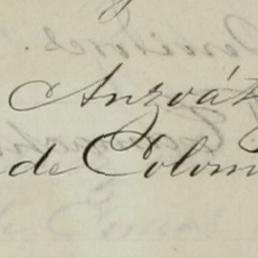 Anzoát
de Colom